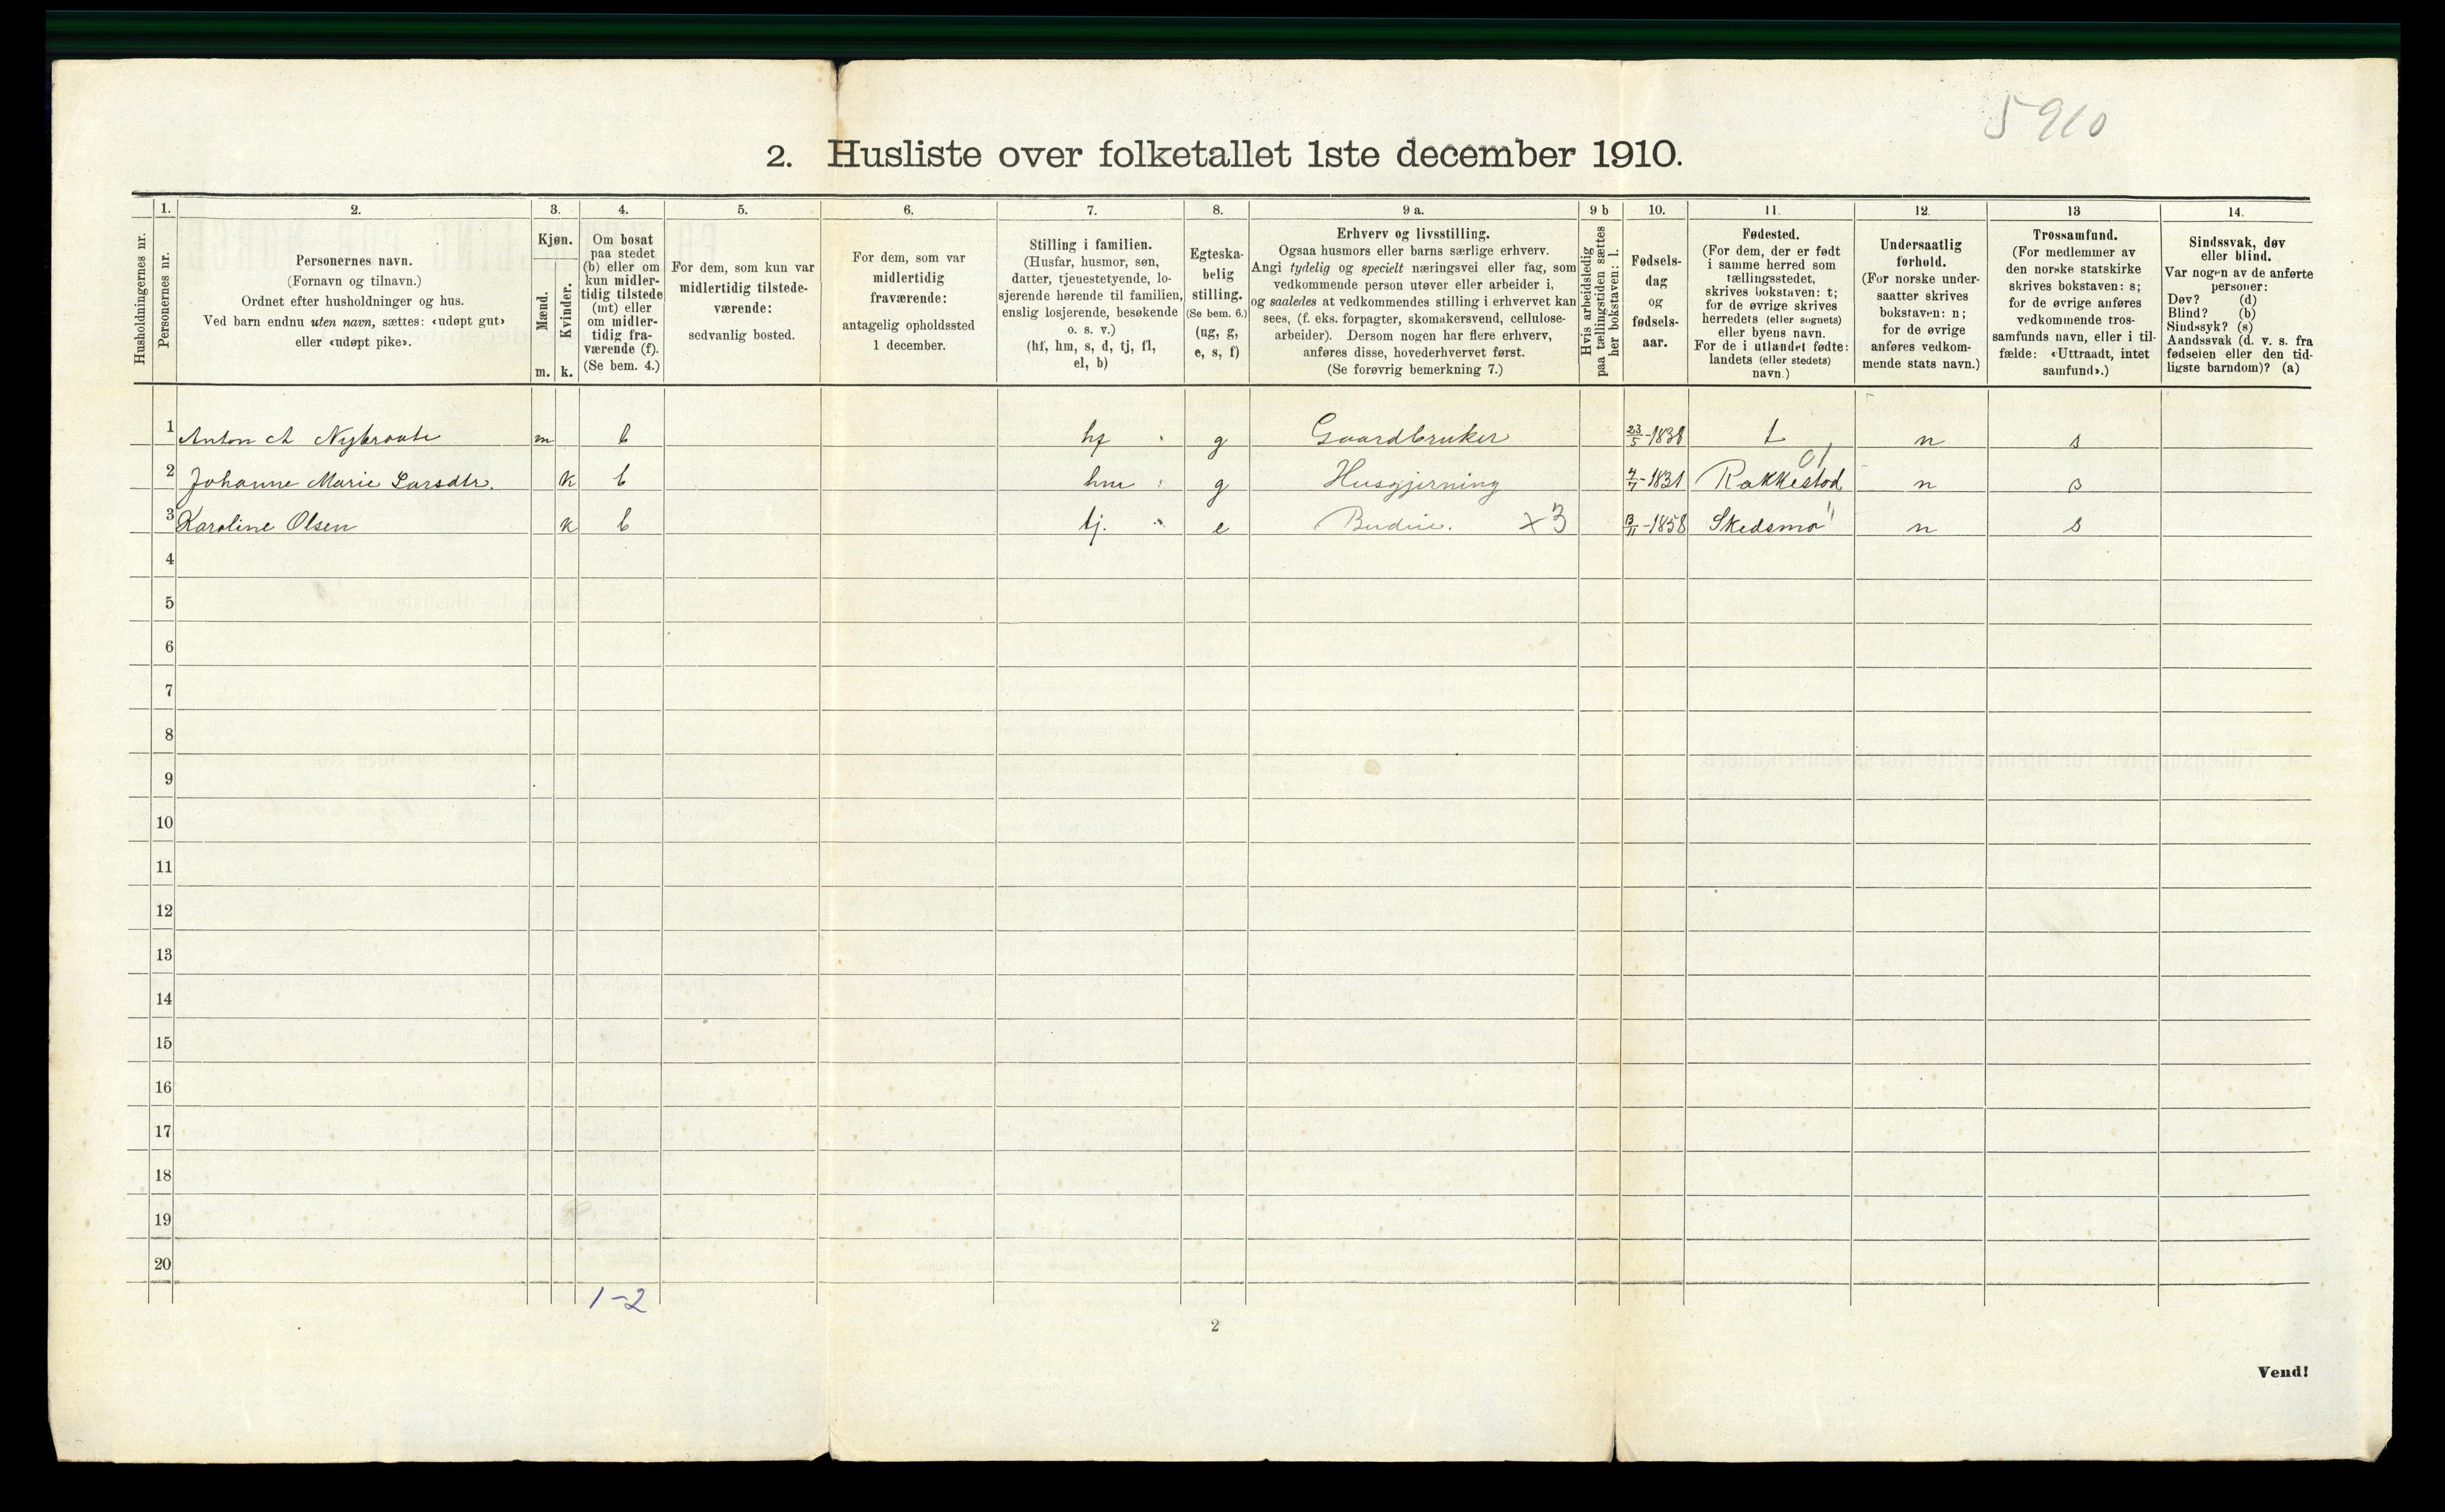 5910
2. Husliste over folketallet 1ste december 1910.
Husholdningernes nr.
1.
Personernes nr.
2.
Personernes navn.
(Fornavn og tilnavn.)
Ordnet efter husholdninger og hus.
Ved barn endnu uten navn, sættes: «udøpt gut»
eller «udøpt pike».
3.
Kjøn.
Mænd.
Kvinder.
m. k.
4.
Om bosat
paa stedet
(b) eller om
kun midler-
tidig tilstede
(mt) eller
om midler-
tidig fra-
værende (f).
(Se bem. 4.)
5.
For dem, som kun var
midlertidig tilstede-
værende:
sedvanlig bosted.
6.
For dem, som var
midlertidig
fraværende:
antagelig opholdssted
1 december.
7.
Stilling i familien.
(Husfar, husmor, søn,
datter, tjenestetyende, lo-
sjerende hørende til familien,
enslig losjerende, besøkende
o. s. v.)
(hf, hm, s, d, tj, fl,
el, b)
8.
Egteska-
belig
stilling.
(Se bem. 6.)
(ug, g,
e, s, f)
9 a.
Erhverv og livsstilling.
Ogsaa husmors eller barns særlige erhverv.
Angi tydelig og specielt næringsvei eller fag, som
vedkommende person utøver eller arbeider i,
og saaledes at vedkommendes stilling i erhvervet kan
sees, (f. eks. forpagter, skomakersvend, cellulose-
arbeider). Dersom nogen har flere erhverv,
anføres disse, hovederhvervet først.
(Se forøvrig bemerkning 7.)
9 b
Hvis arbeidsledig
paa tællingstiden sættes
her bokstaven: l.
10.
Fødsels-
dag
og
fødsels-
aar.
11.
Fødested.
(For dem, der er født
i samme herred som
tællingsstedet,
skrives bokstaven: t;
for de øvrige skrives
herredets (eller sognets)
eller byens navn.
For de i utlandet fødte:
landets (eller stedets)
navn.)
12.
Undersaatlig
forhold.
(For norske under-
saatter skrives
bokstaven: n;
for de øvrige
anføres vedkom-
mende stats navn.)
13
Trossamfund.
(For medlemmer av
den norske statskirke
skrives bokstaven: s;
for de øvrige anføres
vedkommende tros-
samfunds navn, eller i til-
fælde: «Uttraadt, intet
samfund».)
14.
Sindssvak, døv
eller blind.
Var nogen av de anførte
personer:
Døv? (d)
Blind? (b)
Sindssyk? (s)
Aandssvak (d. v. s. fra
fødselen eller den tid-
ligste barndom)? (a)
1 Anton A Nybraate m b hf g Gaardbruker 23/5-1838 t n s
01
2 Johanne Marie Larsdtr. k b hm g Husgjerning 7/7-1831 Rakkestad n s
3 Karoline Olsen k b tj. e Budeie. x3 13/11-1858 Skedsmo " n s
4
5
6
7
8
9
10
11
12
13
14
15
16
17
18
19
20
1-2
2
Vend!